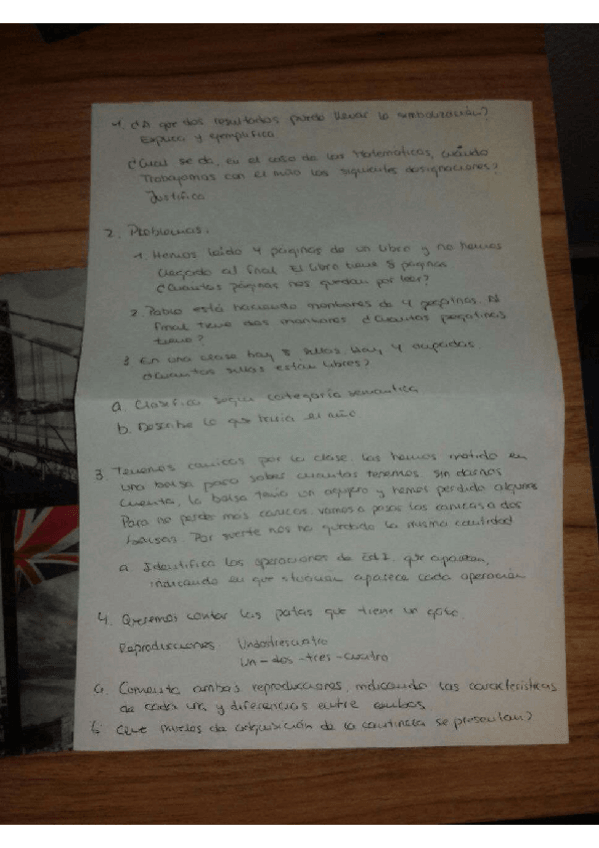 1. ¿A que dos resultados puede llevar la simbolización?
Explica y ejemplifica
¿Cual se da, en el caso de las Matematicas, cuándo
Trabajamos con el niño las siguientes designaciones?
Justifica
2. Problemas.
1. Hemos leido 4 páginas de un libro y no hemos
llegado al final. El libro tiene 8 páginas
¿Cuantas páginas nos quedan por leer?
2. Pablo está haciendo montones de 4 pegatinas. Al
final tiene dos montones. ¿Cuantas pegatinas
tiene?
3. En una clase hay 8 sillas. Hay 4 ocupadas
¿Cuantas sillas estan libres?
a. Clasifica según categoría semantica
b. Describe lo que haria el niño
3. Tenemos canicas por la clase. las hemos metido en
una bolsa para saber cuantas tenemos. Sin darnos
cuenta, la bolsa tenia un agujero y hemos perdido algunas
Para no perder mas canicas, vamos a pasar las canicas a dos
bolsas. Por suerte nos ha quedado la misma cantidad
a. Identifica las operaciones de que aparecen,
indicando en que situación aparece cada operación
4. Queremos contar las patas que tiene un gato.
Reproducciones Undostrescuatro
Un-dos-tres-cuatro
a. Comenta ambas reproducciones, indicando las caracteristicas
de cada una y diferencias entre ambas
b. Que niveles de adquisición de la cantinela se presentan?